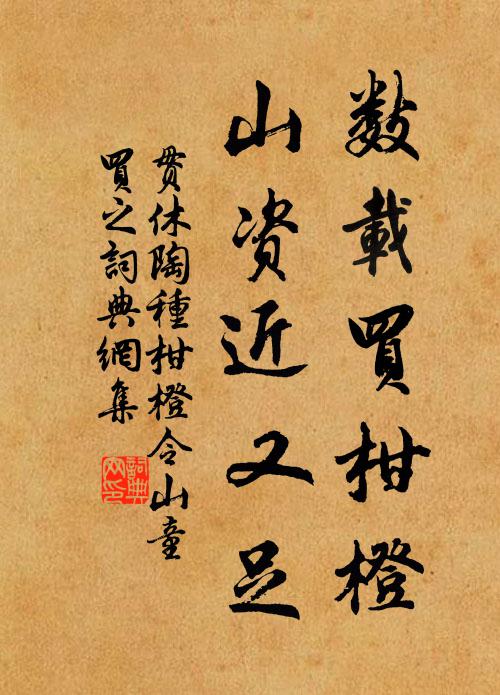 数載買柑橙
山资近又足
贯休陶種柑橙令山童
買之詞典網集
詞典
网印